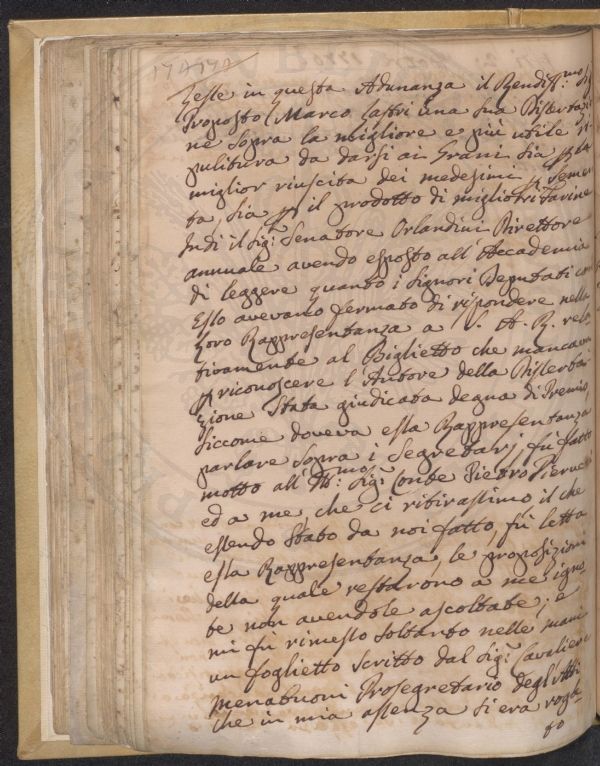 Lesse in questa Adunanza il Rendiss:mo Sig
Proposto Marco Lastri una sua Disserta/zio
ne sopra la migliore e più utile ri
pulitura da darsi ai Grani sia p la
miglior riuscita dei medesimi p Semen
ta, sia p il prodotto di migliori Farine
Indi il Sig: Senatore Orlandini Direttore
annuale avendo esposto all'Accademia
di leggere quanto i Signori Deputati con
Esso avevano fermato di rispondere nella
loro Rappresentanza a S. A. R. rela
tivamente al Biglietto che mancava
p riconoscere l'Autore della Disserta
zione stata giudicata degna di Premio,
siccome doveva essa Rappresentanza
parlare sopra i Segretarj fù fatto
motto all' Ill:mo Sig: Conte Pietro Pierucci
ed a me, che ci ritirassimo il che
essendo stato da noi fatto, fù letta
essa Rappresentanza, le proposizioni
della quale restarono a me igno
te non avendole ascoltate; e
mi fù rimesso soltanto nelle mani
un foglietto scritto dal Sig: Cavaliere
Menabuoni Prosegretario degl'Atti
che in mia assenza si era